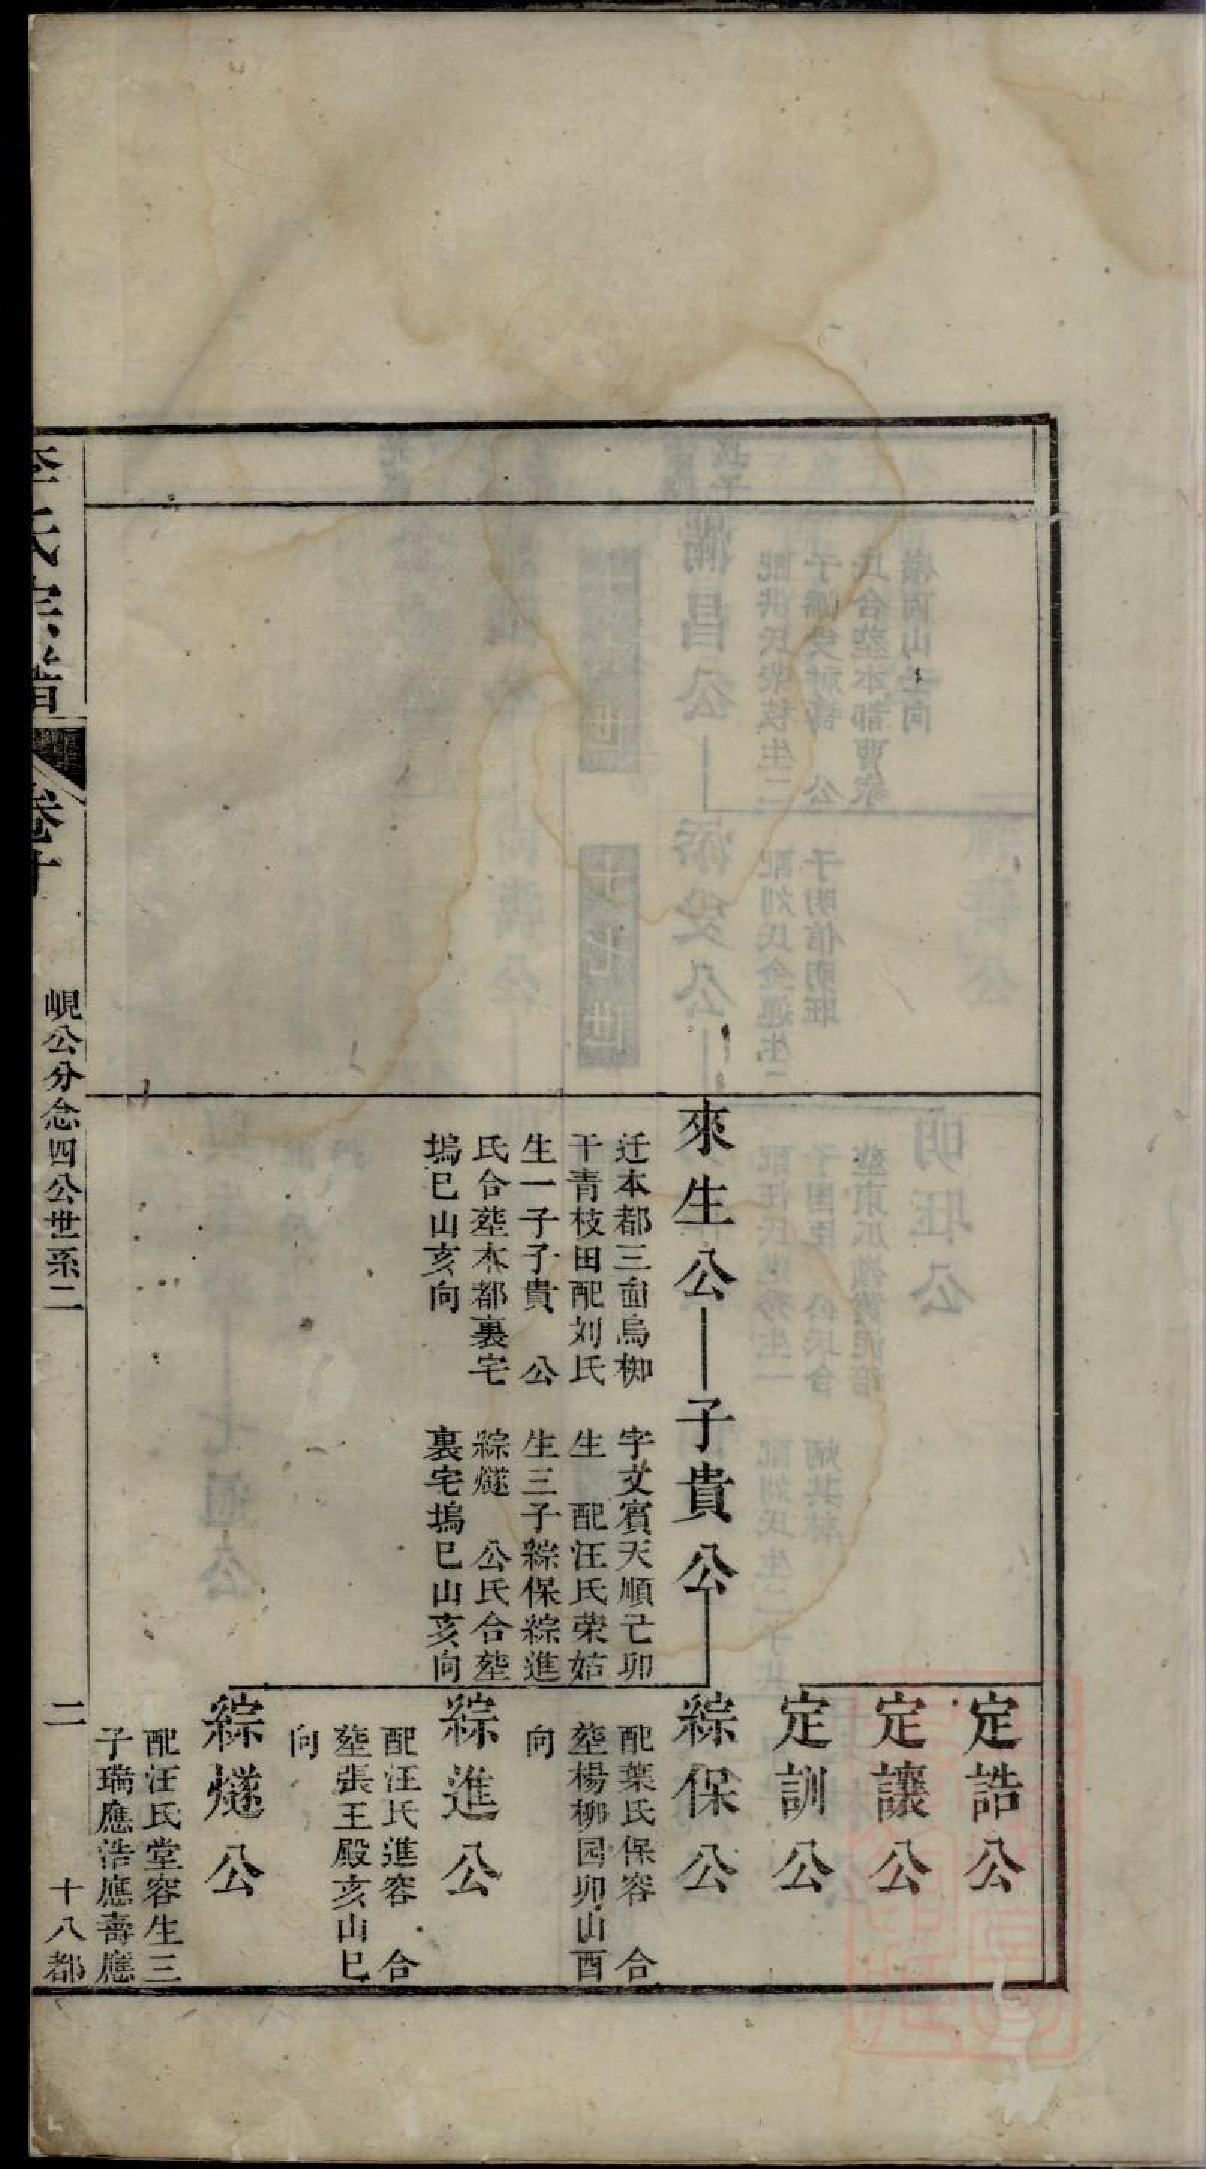 來生公
迁本都三面烏柳
干青枝田配刘氏
生一子子貴　公
氏合塟本都裏宅
塢巳山亥向
子貴公
字文賓天順己卯
生　配汪氏荣姑
生三子綜保綜進
綜燧　公氏合塟
裏宅塢巳山亥向
定誥公
定讓公
定訓公
綜保公
配葉氏保容　合
塟楊柳园卯山酉
向
綜進公
配汪氏進容　合
塟張王殿亥山巳
向
綜燧公
配汪氏堂容生三
子瑞應浩應壽應
李氏宗譜
卷十
峴公分念四公世系二
二
十八都